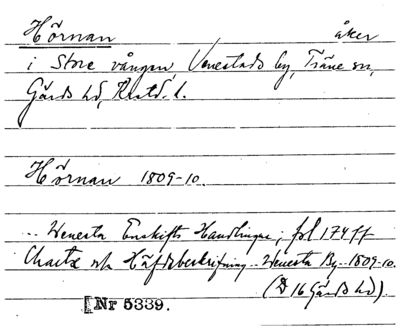 Hörnan åker
i Store vången, Venestads by, Träne sn,
Gärds hd, Kristd. l.
Hörnan 1809-10.
.. Wenesta Enskifts Handlingar; fol 174 ff
Charta och Häfdebeskrifning .. Wenesta By .. 1809-10.
(D 16 Gärds hd).
Nr 5339.